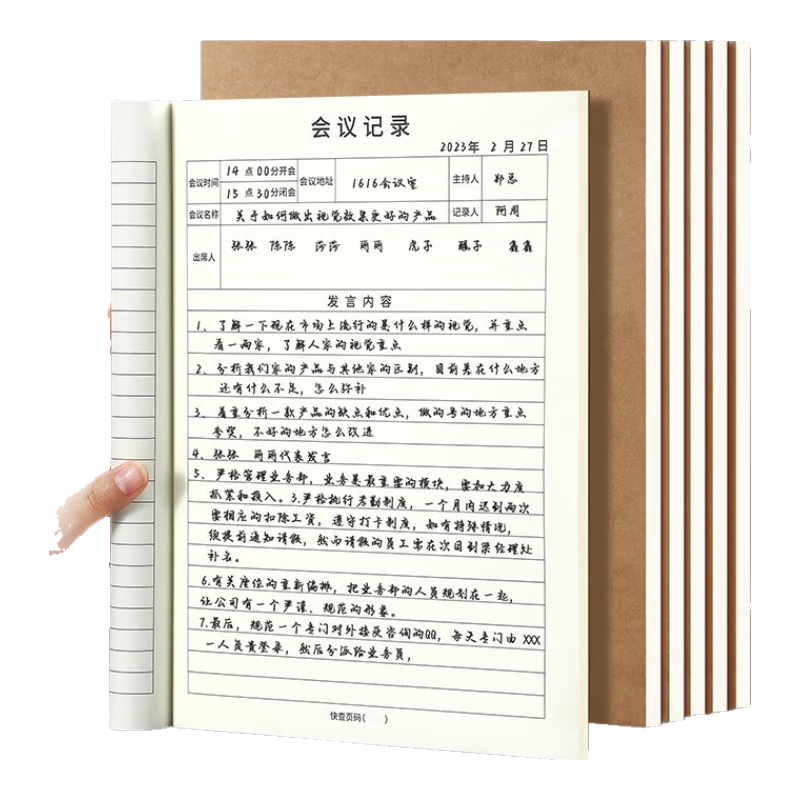 会议记录
2023年 2月27日
会议时间 14点00分开会 会议地址 1616会议室 主持人 郑总
15点30分闭会
会议名称 关于如何做出视觉效果更好的产品 记录人 阿周
出席人 张张 陈陈 莎莎 丽丽 虎子 鑫鑫
发言内容
1、了解一下现在市场上流行的是什么样的视觉，并重点
看一两家，了解人家的视觉重点
2、分析我们家的产品与其他家的区别，目前是在什么地方
还有什么不足，怎么弥补
3、着重分析一款产品的缺点和优点，做的好的地方重点
夸奖，不好的地方怎么改进
4、张张 丽丽代表发言
5、严格管理业务部，业务是最重要的模块，要加大力度
抓紧和投入。3.严格执行考勤制度，一个月内迟到两次
要相应的扣除工资，遵守打卡制度，如有特殊情况，
须提前通知请假，然而请假的员工需在次日到梁经理处
补名。
6.有关座位的重新编排，把业务部的人员规划在一起，
让公司有一个严谨、规范的形象。
7.最后，规范一个专门对外接受咨询的QQ，每天专门由XXX
一人负责登录，然后分派给业务员，
快查页码( )